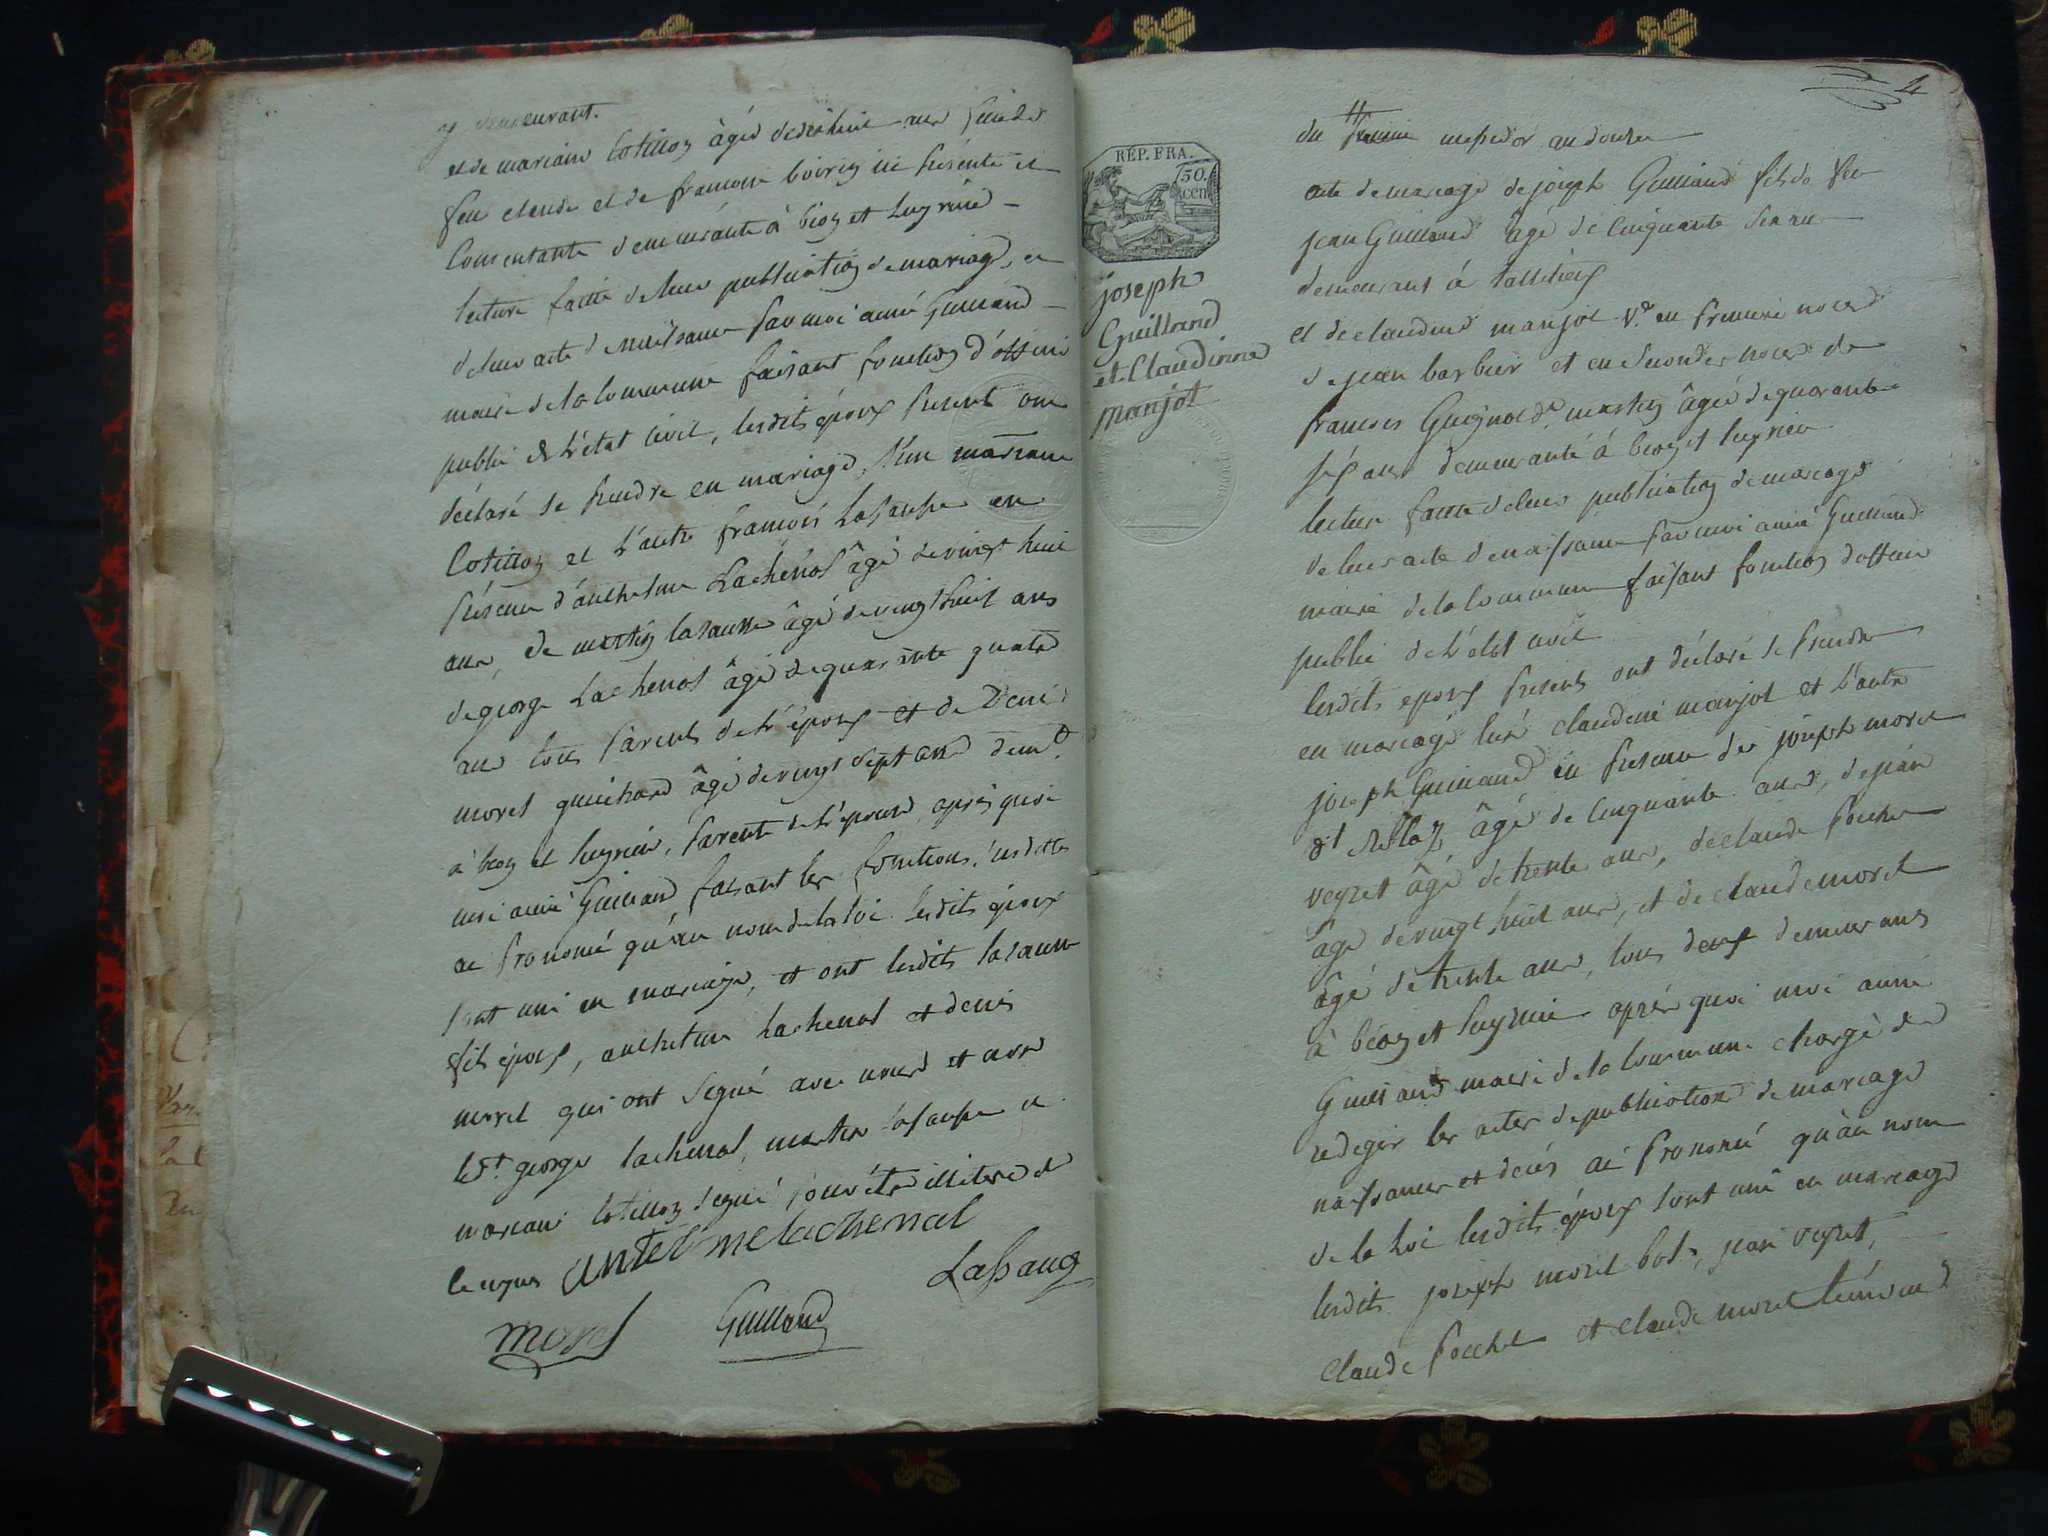 y demeurant.
et de mariane Cotillon âgée de dixhuit ans fille de
feu claude et de francoise boiron ici présente et
Consentante demeurante à béon et luyrieu
lecture faitte de leur publication de mariage, et
de leur acte de naissance par moi aimé Guilland
maire de la commune faisant fonction d'officié
public de l'état civil, lesdits époux present ont
déclaré se prendre en mariage, l'une mariane
Cotillon et l'autre francois Lasausse en
présence d'anthelme Lachenal âgé de vingt huit
ans, de martin lasausse âgé de vingt huit ans
de george Lachenal âgé de quarante quatre
ans tous parents de l'époux et de Denis
morel guichard âgé de vingt sept ans demt.
à beon et luyrieu, parente de l'épouse, après quoi
moi aimé Guilland faisant les fonctions susdittes
ai prononcé qu'au nom de la loi lesdits époux
sont uni en mariage, et ont lesdits lasausse
dit époux, anthelme Lachenal et denis
morel qui ont signé avec nous et non
ledt. george lachenal, martin lasausse et
mariane Cotillon signé pour être illiteré de
ce requis antelmelachenal
Lasaug
morel
Guilland
4
du mesidor an douze
acte de mariage de joseph Guilland fils de feu
jean Guilland âgé de Cinquante six ans
demeurant à talissieux
et de claudine manjot Ve. en premiere noces
de jean barbier et en secondes noces de
francois Guignard dt. martin âgée de quarante
six ans demeurante à beon et luyrieu
lecture faitte de leur publication de mariage
de leur acte de naissance par moi aimé Guilland
maire de la commune faisant fonction d'officie
public de l'état civil
lesdits epoux present ont déclaré se prendre
en mariage l'une claudine manjot et l'autre
joseph Guilland en presence de joseph morel
dt âgé de cinquante ans, de jean
veyret âgé de trente ans, de claude pochet
âgé de vingt huit ans, et de claude morel
âgé de trente ans, tous deux demeurans
à béon et luyrieu après quoi moi aimé
Guilland maire de la commune chargé de
rediger les actes de publication de mariage
naissance et décés ai prononcé qu'au nom
de la loi lesdits époux sont uni en mariage
lesdits joseph morel jean veyret,
claude pochet et claude morel témoins
RÉP. FRA.
50.
CEN.
joseph
Guilland
et Claudinne
manjot